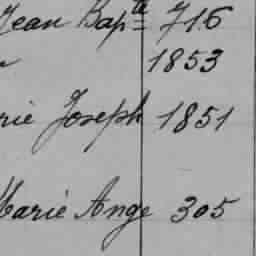 Jean Bapte 716
1853
rie Joseph 1851
Marie Ange 305